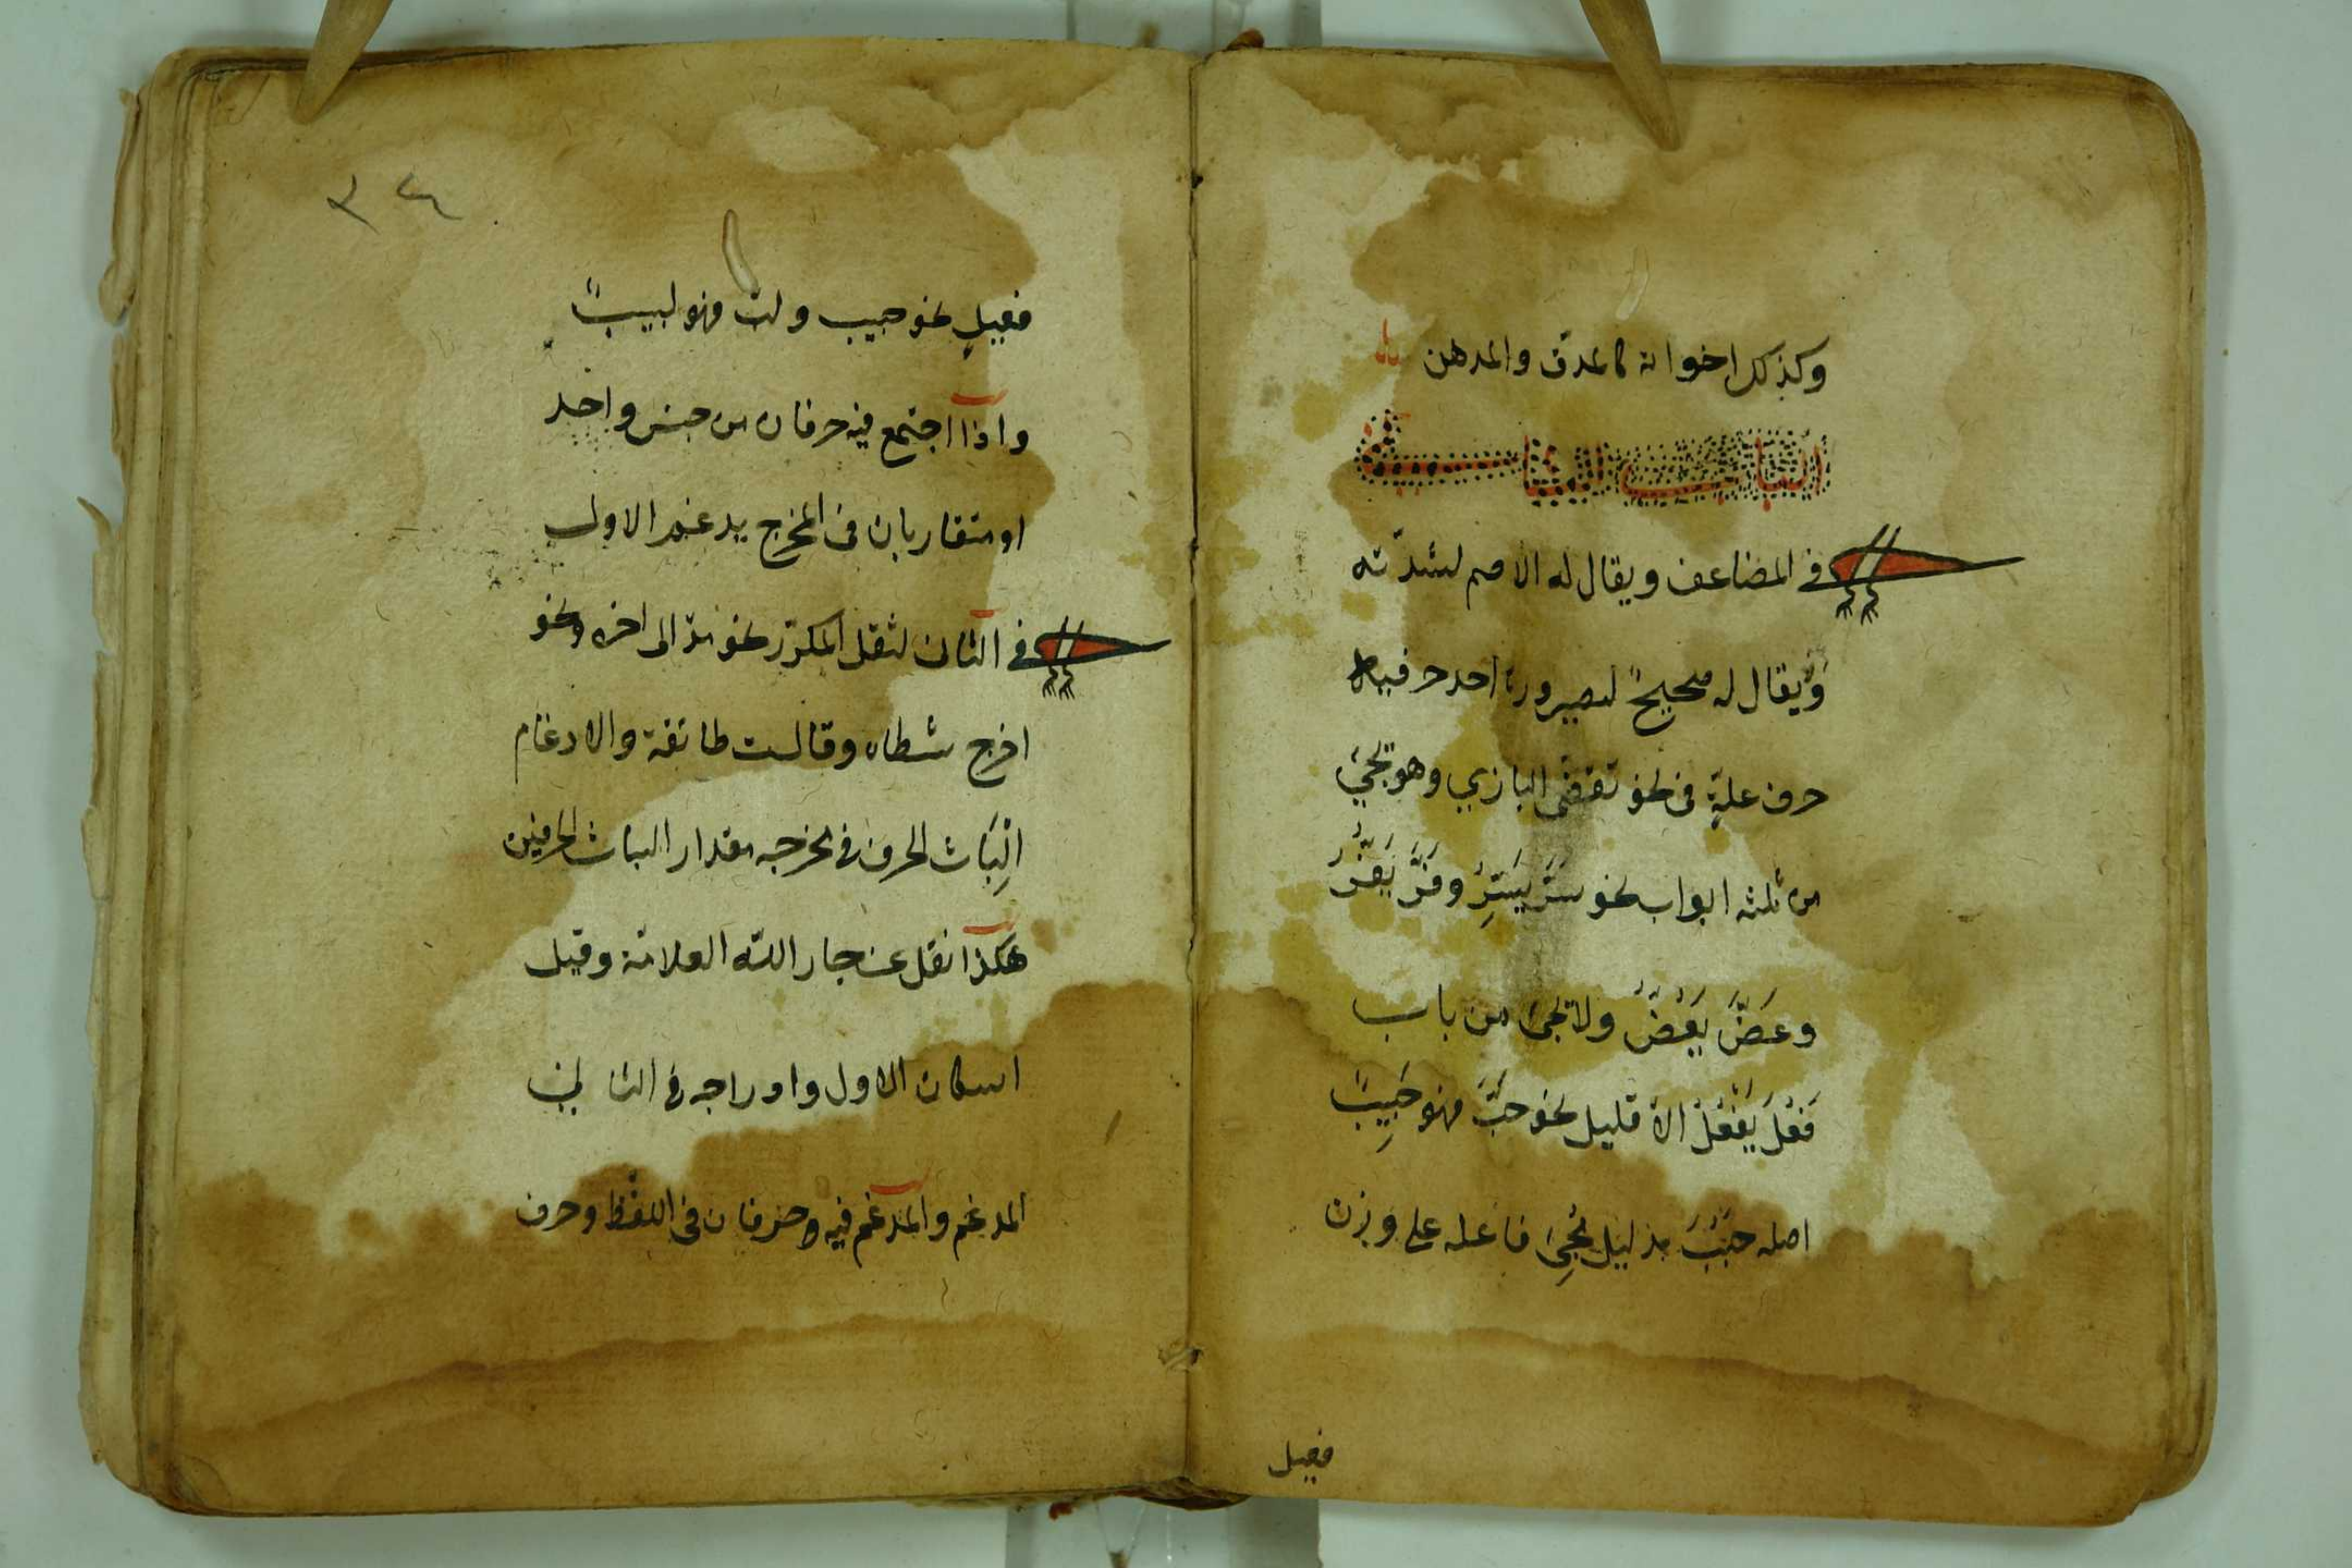 وكذلك اخواته كالمدق والمدهن
الباب الثاني
في المضاعف ويقال له الاصم لشدّته
وَلا يقال له صحيحٌ لصيرورة احد حرفيه
حرف علةٍ فى نحو تقضى البازي وهو يجئ
من ثلثه ابواب نحو سَرَّ يَسِرُّ وفَرَّ يَفِرُّ
وعَضَّ يَعَضُّ ولا يجئ من باب
فَعُلَ يَفْعُلُ الاّ قليل نحو حَبَّ فهو حَبِيبٌ
اصله حَبُبَ بدليل يَجِئ فاعله على وزن
فعيل
٣٤
فعيلٍ نحو حبيب ولبّ فهو لبيبٌ
واذا اجتمع فيه حرفان من جنس واحد
او متقاربان فى المخرج يدغم الاول
في الثانى لثقل المكرّر نحو مدّ الى اخره ونحو
اخرج شطاه وقالت طائفة والادغام
اِلبَاث الحرف فى مخرجه مقدار الباث الحرفين
هكذا نقل عن جار اللّه العلامة وقيل
اسكان الاول وادراجه فى الثانى
المدغم والمدغم فيه حرفان فى اللفظ وحرف